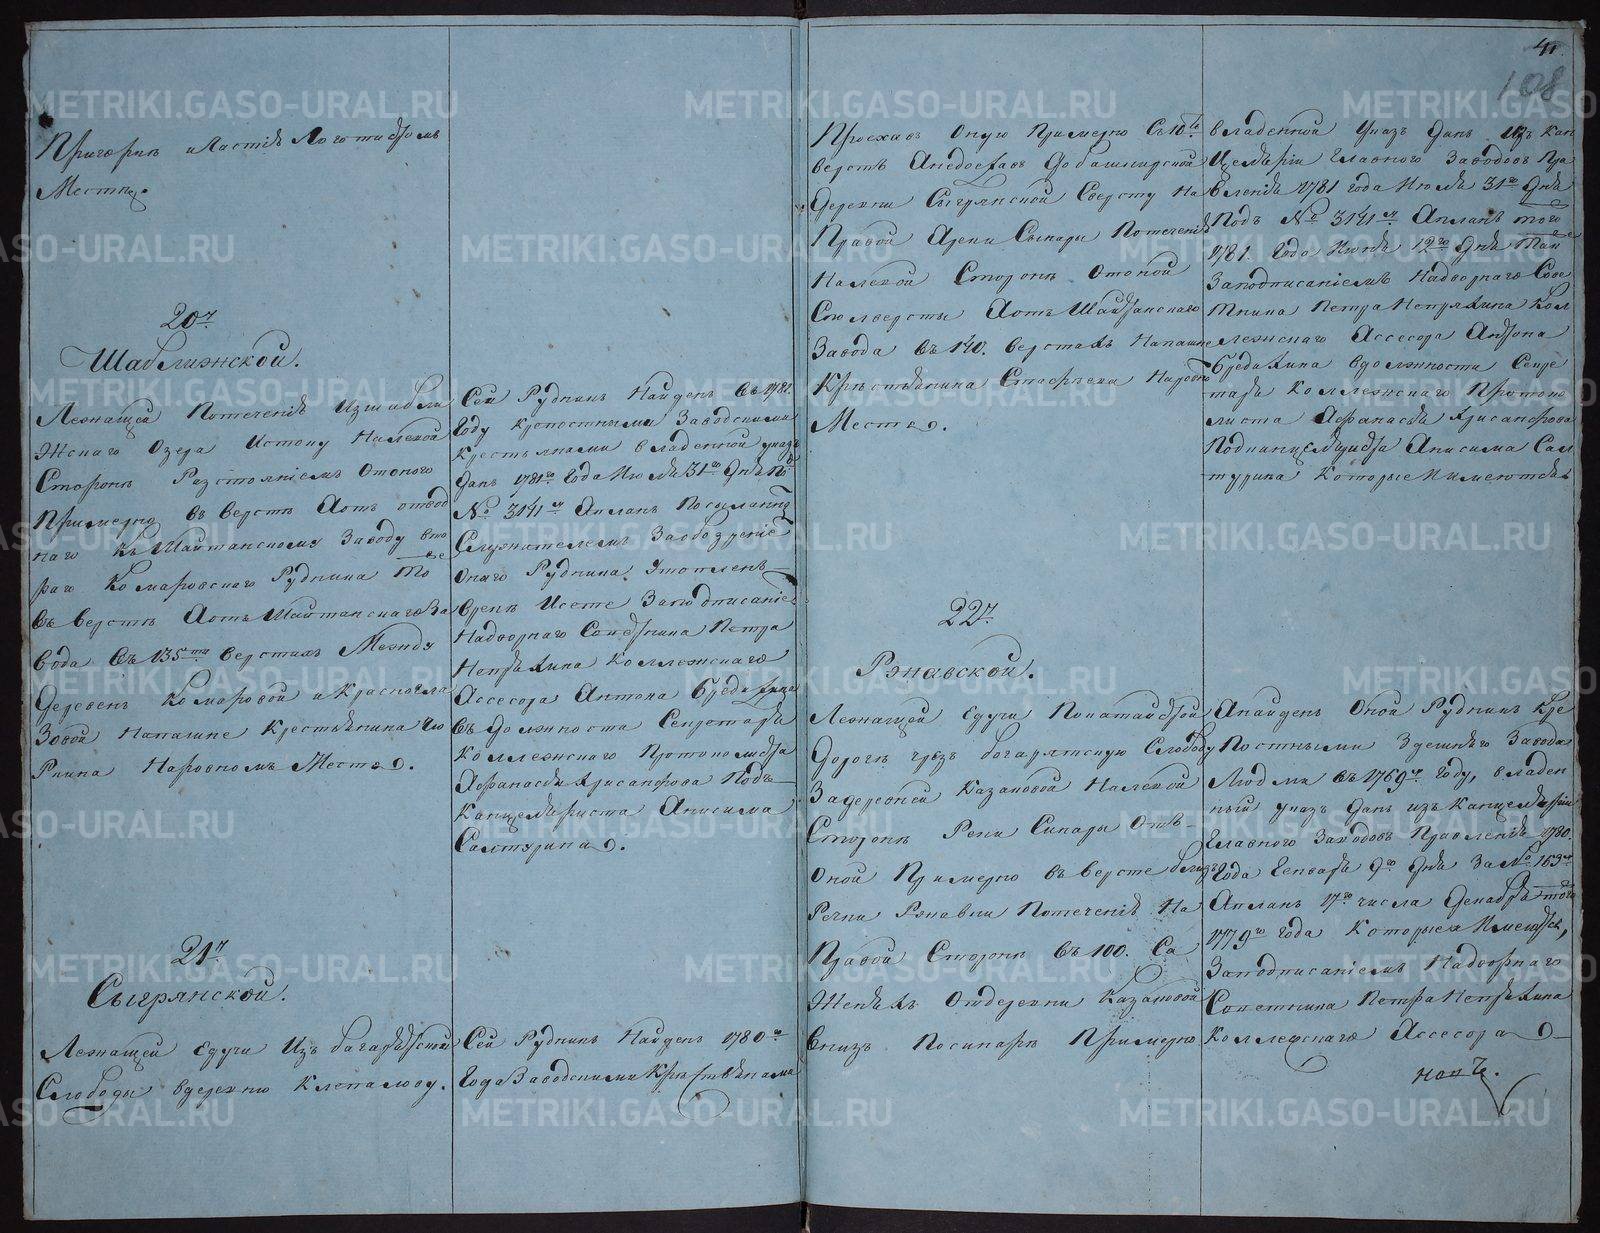 Местѣ.
20й
Шаближской.
Лежащей Потечению Изшабли
жскаго Озера Истоку Налевой
Сторонѣ Разстояниемъ Отоного
Примерно въ верстѣ Аотъ отвод
наго Къ Шайтанскому Заводу вто
раго Комаровскаго Рудника То
же
въ верстѣ Аотъ Шайтанскаго За
вода въ 135ти верстахъ Между
Деревень Комаровой и Красногла
зовой Напашне Крестьянина
Наровномъ Местѣ.
21й
Сыгрянской.
Лежащей едучи Изъ багарятской
Слободы вдеревню Клепалову.
Сей Рудникъ Найденъ въ 1781.
Году крепостными Заводскими
Крестьянами владенной указъ
данъ 1781го Года Июля 31го дня
№ 3141м Апланъ Посыланнымъ
Служителемъ Заобозрение
Онаго Рудника.
Исете Заподписаниемъ
Надворнаго Советника Петра
Коллежскаго
Ассесора Антона
въ должности Секретаря
Коллежскаго Протоколиста
Афанасья Хрисанфова Подъ
Канцеляриста Анисима
Салтурина.
Сей Рудникъ Найденъ 1780го
Года Заводскими Крестьянами
41
108
Проехавъ Оную Примерно Съ 10ть
верстъ Анедоехавъ добашкирской
Деревни Сыгрянской Сверсту На
Правой Ареки Синары Потечению
Налевой Сторонѣ Отоной
Стольверсты Аотъ Шайтанскаго
Завода въ 140. верстахъ Напашне
Крестьянина Наровно
Местѣ.
22й
Ржавской.
Лежащей Едучи Покатайской
Дорогѣ чрезъ багаряцскую Слободу
Задеревней Казаковой Налевой
Сторонѣ Реки Синары Отъ
Оной Примерно въ версте близъ
Речки Ржавки Потечению На
Правой Сторонѣ въ 100. Са
женяхъ Отдеревни Казаковой
Внизъ Посинарѣ Примерно
владенной Указъ Данъ Изъ Кан
целярии Главного Заводовъ Пра
вления 1781 года Июля 31го Дня
Подъ № 3141м Апланъ того
же
1781. Года Июня 19го Дня
Заподписаниемъ Надворнаго Сове
тника Петра Кол
лежскаго Ассесора Антона
вдолжности Секре
таря Коллежскаго Протоко
листа Афанасья Хрисанфова
Подканцеляриста Анисима Сал
турина Которые Иимеются
Анайденъ Оной Рудникъ Кре
постными Здешнего Завода
Людми въ 1769м Году, владен
ный указъ данъ изъ Канцелярии
Главного Заводовъ Правления 1780.
Года Генваря 9го Дня За№ 163м
Апланъ 17го числа Декабря того
1779го года Которыя Имеются,
Заподписаниемъ Надворнаго
Советника Петра
Коллежскаго Ассесора